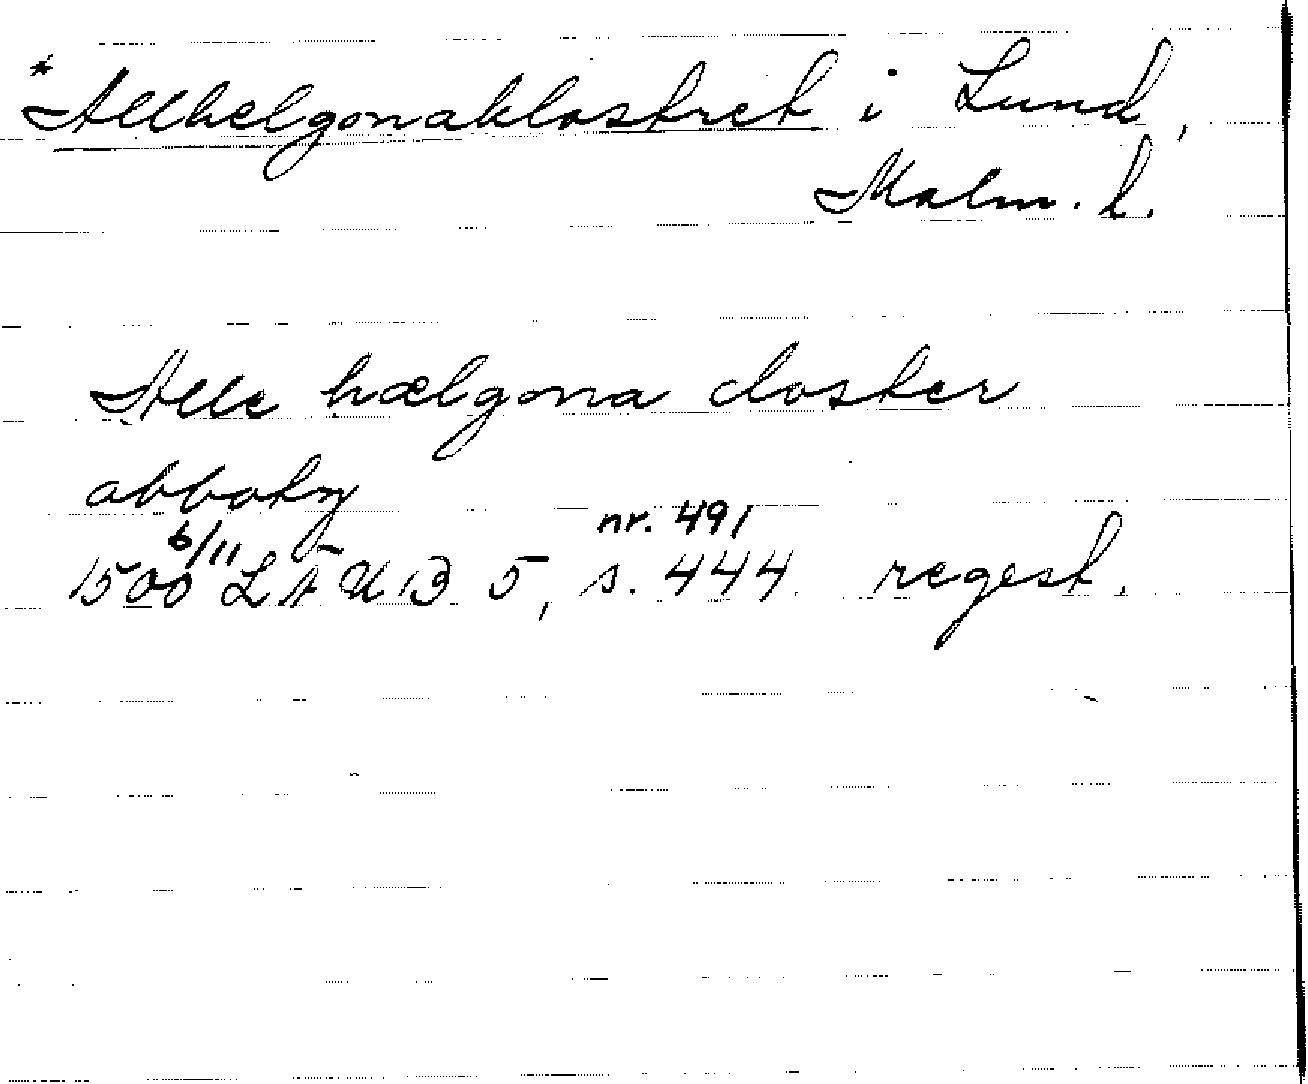 *Allhelgonaklostret i Lund,
Malm. l.
Alle hælgona closter
abboty
nr. 491
1500 6/11 LÄUB 5, s. 444 regest.